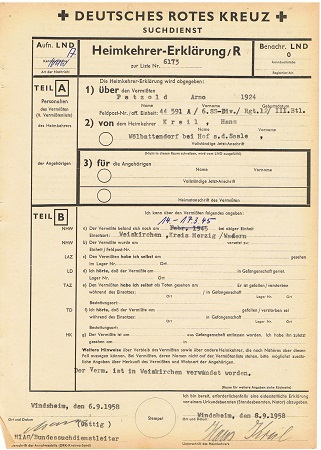 + DEUTSCHES ROTES KREUZ +
SUCHDIENST
Aufn. LND
Heimkehrer-Erklärung/R
Benachr. LND
0
zur Liste Nr. 6173
Art der Nachricht
Die Heimkehrer-Erklärung wird abgegeben:
TEIL A
1) über den Vermißten
Petzold Arno 1924
Name Vorname
Feldpost-Nr./off. Einheit: 44 591 A / 6.SS-Div./ Rgt.12/ III.Btl.
Personalien
des Vermißten
(lt. Vermißtenliste)
des Heimkehrers
2) von dem Heimkehrer Kreil, Hans
Name Vorname
Wölbattendorf bei Hof a.d.Saale
Vollständige Jetzt-Anschrift
der Angehörigen
3) für die Angehörigen
Name Vorname
Vollständige Jetzt-Anschrift
Heimatanschrift des Vermißten
TEIL B
Ich kann über den Vermißten folgendes angeben:
14.-17.3.45
NHW
a) Der Vermißte befand sich noch am Febr. 1945 bei obiger Einheit
Einsatzort: Weiskirchen, Kreis Merzig /Wadern
NHW
b) Der Vermißte wurde am versetzt zu:
Einheit / Feldpost-Nr.
LAZ
c) Den Vermißten habe ich selbst am gesehen
im Lager Nr. Ort
LD
d) Ich hörte, daß der Vermißte am in Gefangenschaft geriet.
Ort Lager Nr. Ort
TAZ
e) Den Vermißten habe ich selbst als Toten gesehen am Er ist gefallen / verstorben
während des Einsatzes: / in Gefangenschaft
Ort Lager Nr. Ort
Bestattungsort:
TD
f) Ich hörte, daß der Vermißte am gefallen / verstorben sei
während des Einsatzes: / in Gefangenschaft:
Ort Lager Nr. Ort
Bestattungsort:
HK
g) Der Vermißte ist am aus Gefangenschaft entlassen worden. Ich habe ihn zuletzt
gesehen am in
Ort
Der Verm. ist in Weiskirchen verwundet worden.
Windsheim, den 6.9.1958
Windsheim, den 8.9.1958
Ort Datum
Stempel
Ort Datum
(Göttig)
HIAG/Bundessuchdienstleiter
Hans Kreil
Unterschrift des Heimkehrers